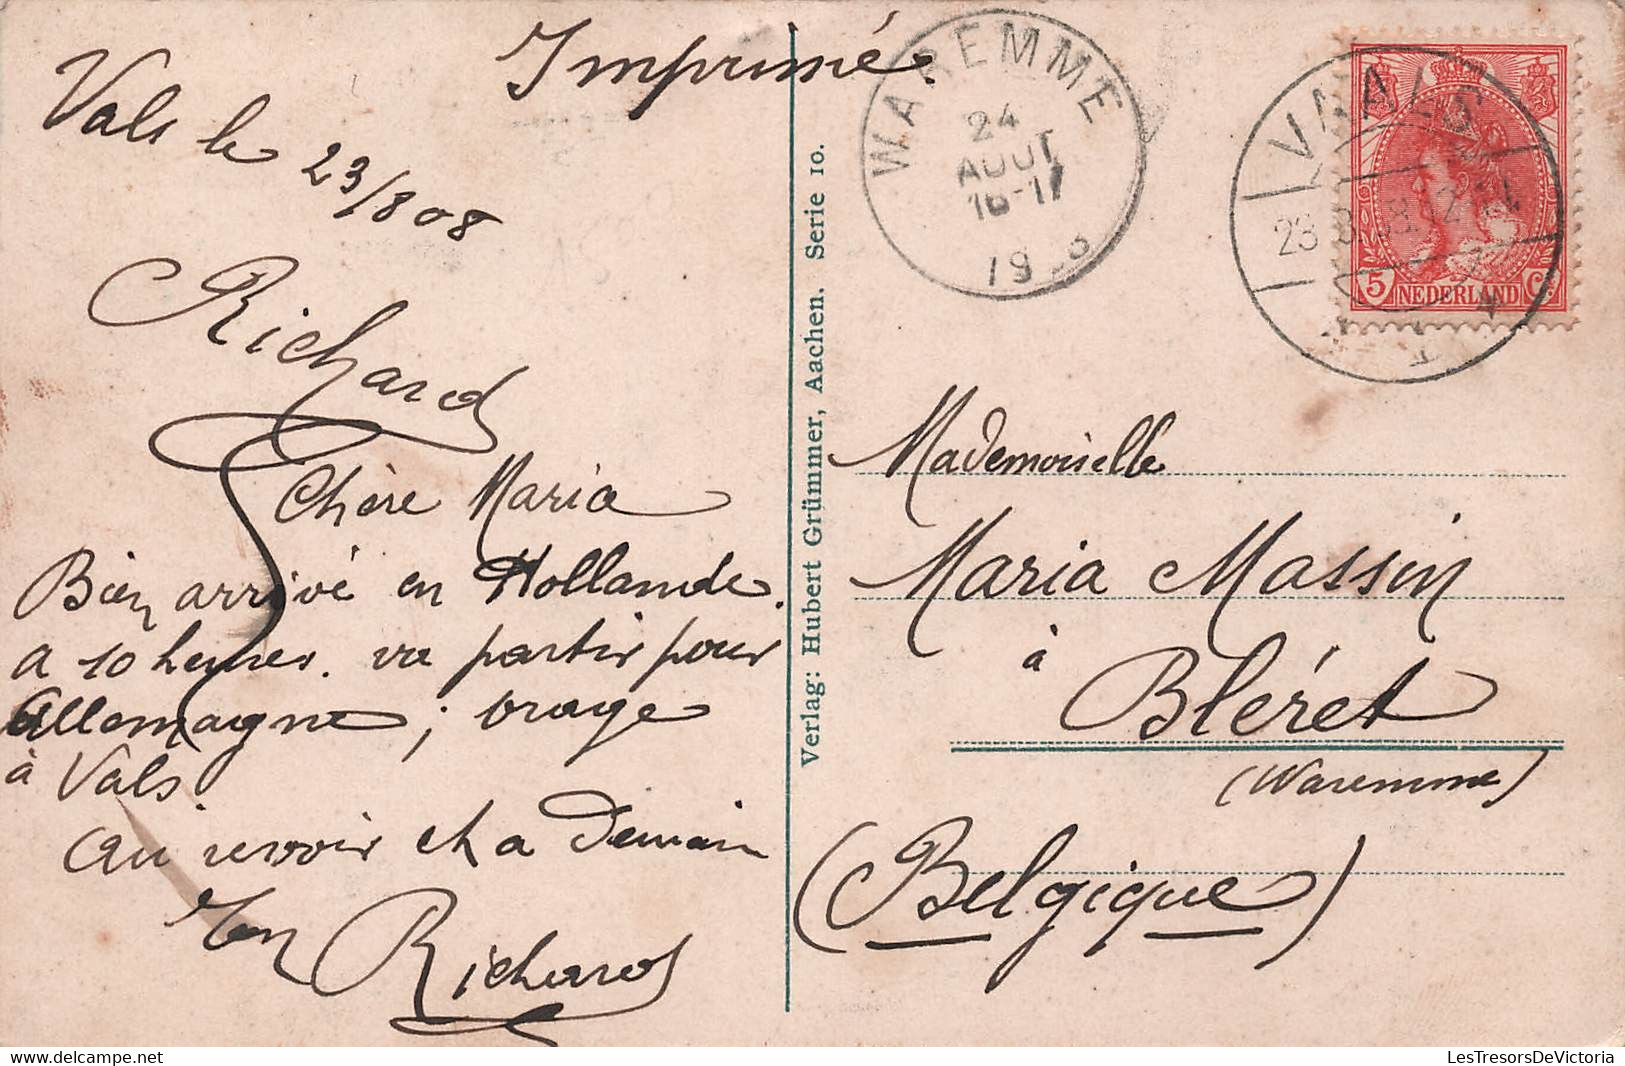 Imprimé.
Vals le 23/8 08
Richard
Chère Maria
Bien arrivé en Hollande.
a 10 heures. va partir pour
Allemagne ; orage
à Vals.
au revoir et a Demain
Ton Richard
Verlag: Hubert Grümmer, Aachen. Serie 10.
WAREMME
24
AOUT
16-17
VAALS
5 NEDERLAND Ct.
Mademoiselle
Maria Massin
à Bléret
(Waremme)
(Belgique)
LesTresorsDeVictoria